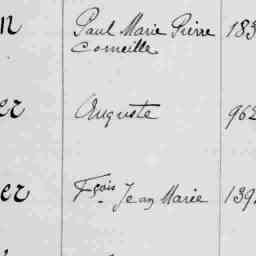 Paul Marie Pierre 183
Corneille
er Auguste 962
er Fçois Jean Marie 139